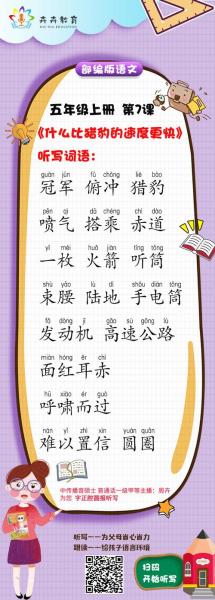 卉卉教育
HUI HUI EDUCATION
部编版语文
五年级上册 第7课
《什么比猎豹的速度更快》
听写词语：
guàn jūn fǔ chōng liè bào
冠军 俯冲 猎豹
pēn qì dā chéng chì dào
喷气 搭乘 赤道
yī méi huǒ jiàn tīng tǒng
一枚 火箭 听筒
shù yāo lù dì shǒu diàn tǒng
束腰 陆地 手电筒
fā dòng jī gāo sù gōng lù
发动机 高速公路
miàn hóng ěr chì
面红耳赤
hū xiào ér guò
呼啸而过
nán yǐ zhì xìn yuán quān
难以置信 圆圈
中传播音硕士 普通话一级甲等主播：周卉
为您 字正腔圆报听写
听写——为父母省心省力
跟读——给孩子语言环境
扫码
开始听写